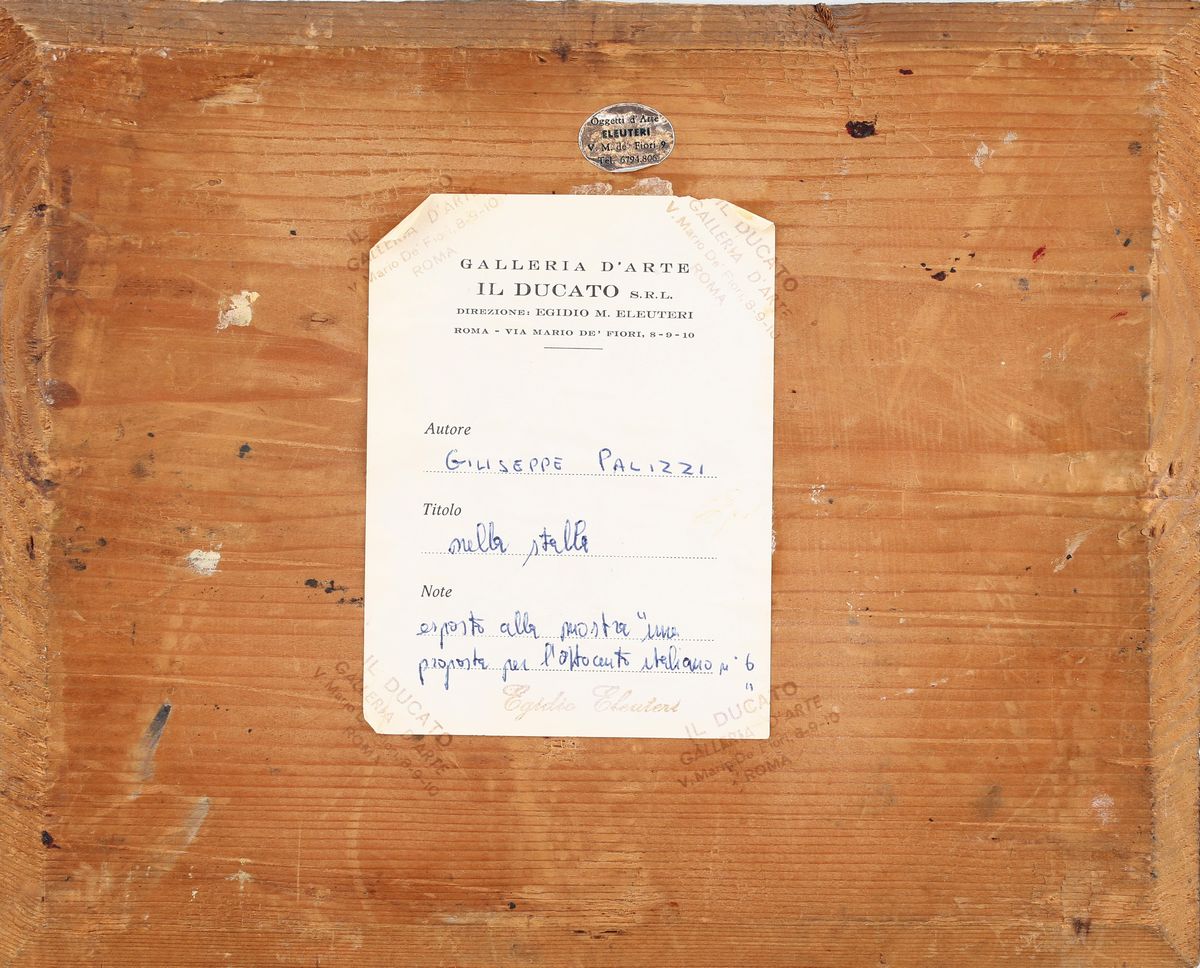 Oggetti d'Arte
ELEUTERI
V. M. de' Fiori 9
Tel. 6794.806
IL DUCATO
GALLERIA D'ARTE
V. Mario De' Fiori, 8-9-10
ROMA
IL DUCATO
GALLERIA D'ARTE
V. Mario De' Fiori, 8-9-10
ROMA
GALLERIA D'ARTE
IL DUCATO S.R.L.
DIREZIONE: EGIDIO M. ELEUTERI
ROMA - VIA MARIO DE' FIORI, 8-9-10
Autore
GIUSEPPE PALIZZI
Titolo
nella stalla
Note
esposto alla mostra "una
proposta per l'ottocento italiano n° 6
"
Egidio Eleuteri
IL DUCATO
GALLERIA D'ARTE
V. Mario De' Fiori, 8-9-10
ROMA
IL DUCATO
GALLERIA D'ARTE
V. Mario De' Fiori, 8-9-10
ROMA